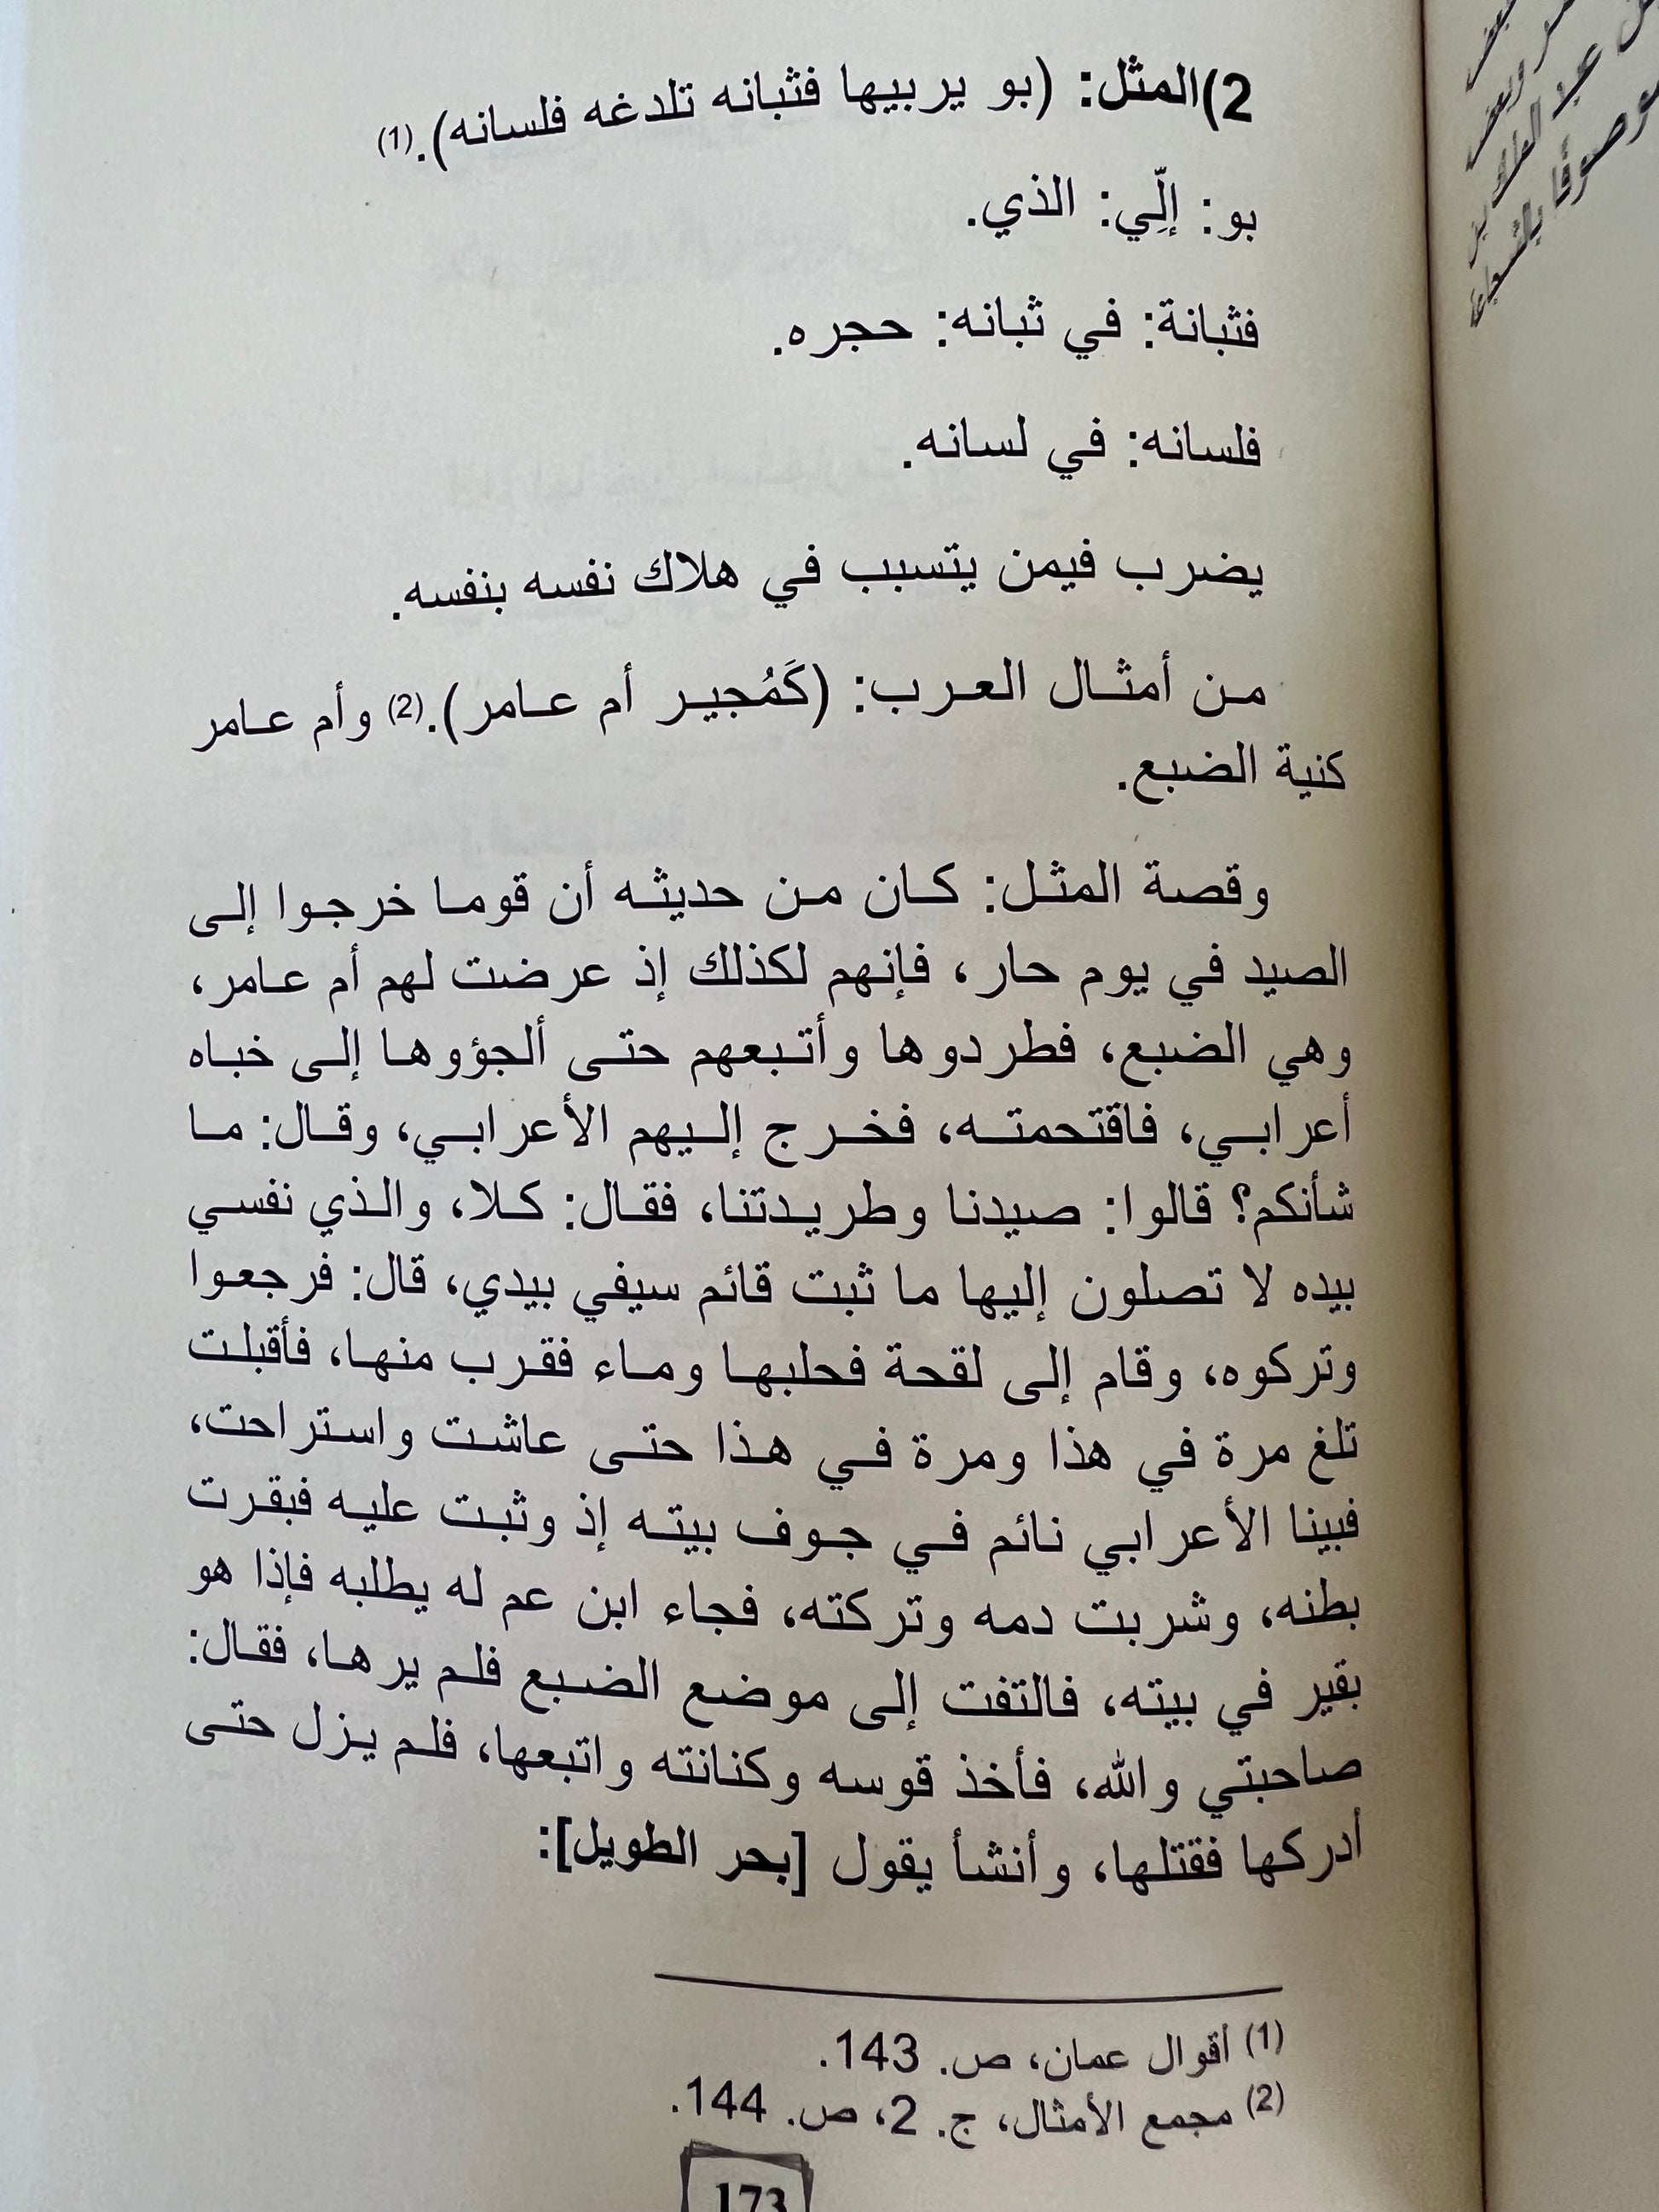 2)المثل: (بو يربيها فثبانه تلدغه فلسانه).(1)
بو: إلّي: الذي.
فثبانة: في ثبانه: حجره.
فلسانه: في لسانه.
يضرب فيمن يتسبب في هلاك نفسه بنفسه.
من أمثال العرب: (كَمُجير أم عامر).(2) وأم عامر
كنية الضبع.
وقصة المثل: كان من حديثه أن قوما خرجوا إلى
الصيد في يوم حار، فإنهم لكذلك إذ عرضت لهم أم عامر،
وهي الضبع، فطردوها وأتبعهم حتى ألجؤوها إلى خباه
أعرابي، فاقتحمته، فخرج إليهم الأعرابي، وقال: ما
شأنكم؟ قالوا: صيدنا وطريدتنا، فقال: كلا، والذي نفسي
بيده لا تصلون إليها ما ثبت قائم سيفي بيدي، قال: فرجعوا
وتركوه، وقام إلى لقحة فحلبها وماء فقرب منها، فأقبلت
تلغ مرة في هذا ومرة في هذا حتى عاشت واستراحت،
فبينا الأعرابي نائم في جوف بيته إذ وثبت عليه فبقرت
بطنه، وشربت دمه وتركته، فجاء ابن عم له يطلبه فإذا هو
بقير في بيته، فالتفت إلى موضع الضبع فلم يرها، فقال:
صاحبتي والله، فأخذ قوسه وكنانته واتبعها، فلم يزل حتى
أدركها فقتلها، وأنشأ يقول [بحر الطويل]:
(1) أقوال عمان، ص. 143.
(2) مجمع الأمثال، ج. 2، ص. 144.
173
عبد الملك بن
موصوفًا بالشجاعة